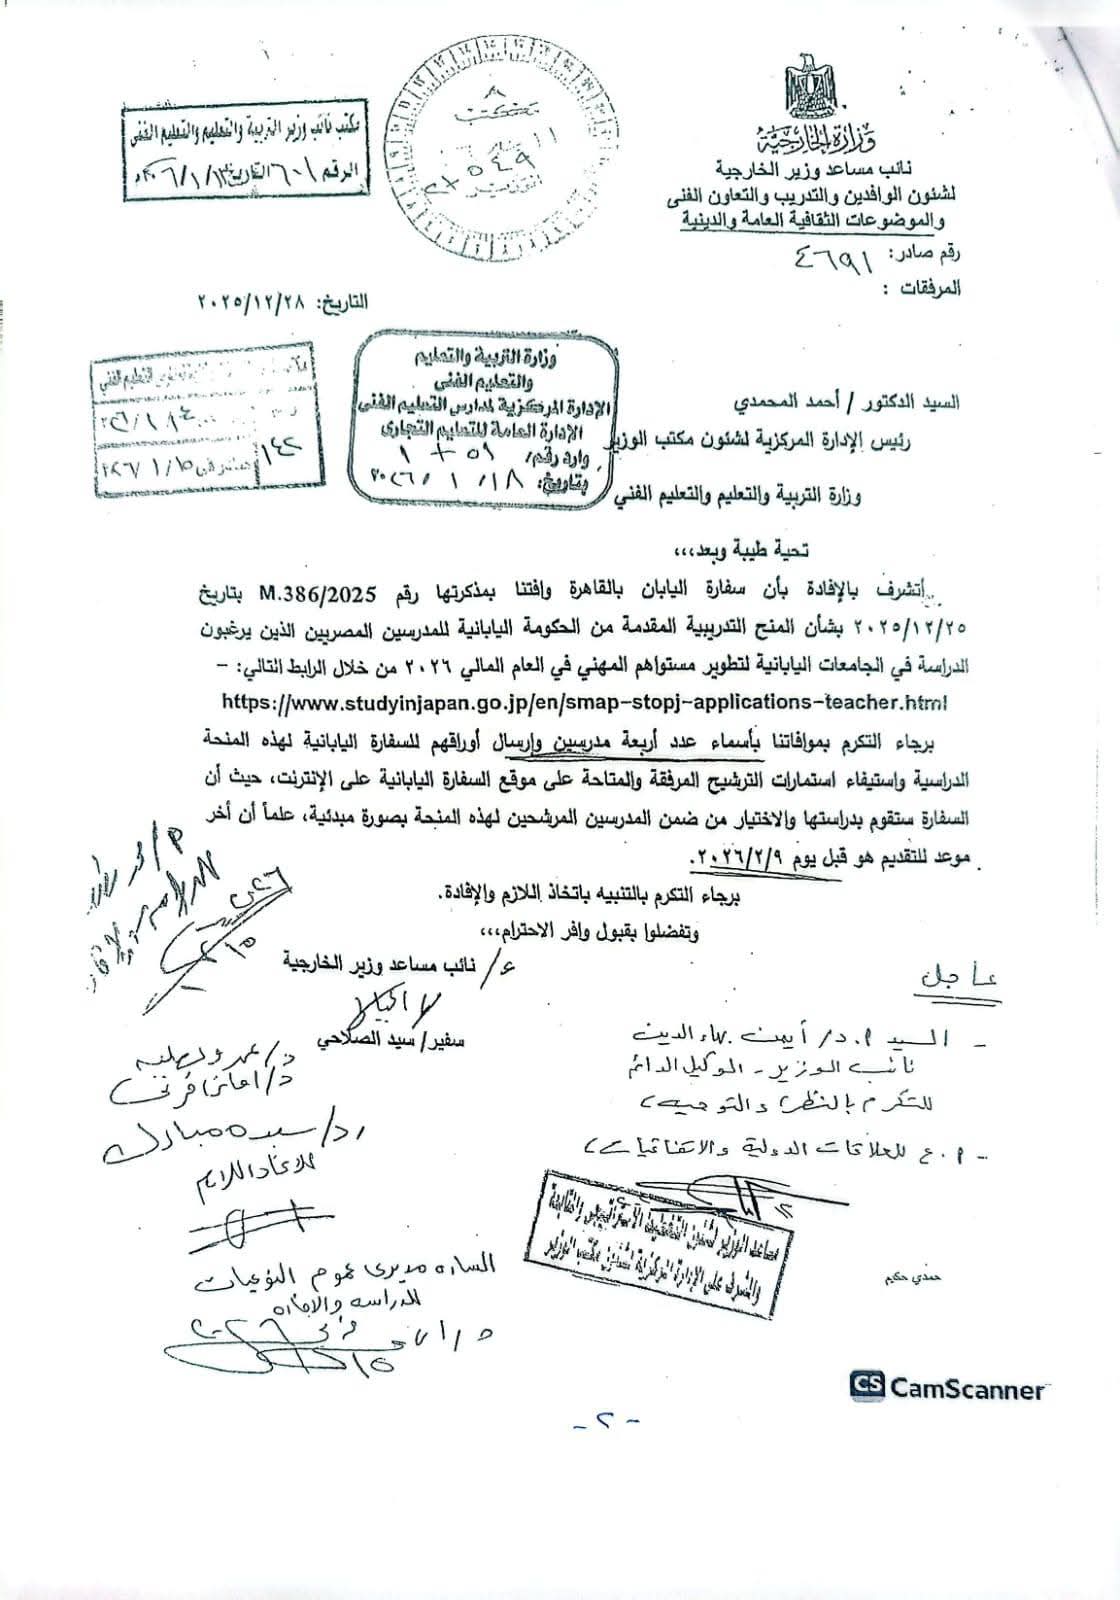 وزارة الخارجية
نائب مساعد وزير الخارجية
لشئون الوافدين والتدريب والتعاون الفنى
والموضوعات الثقافية العامة والدينية
رقم صادر: ٤٦٩١
المرفقات :
مكتب نائب وزير التربية والتعليم والتعليم الفنى
الرقم ٦٠١ التاريخ
التاريخ: ٢٠٢٥/١٢/٢٨
وزارة التربية والتعليم
والتعليم الفنى
الإدارة المركزية لمدارس التعليم الفنى
الإدارة العامة للتعليم التجارى
وارد رقم/
بتاريخ: ٢٠٢٦/١/١٨
السيد الدكتور / أحمد المحمدي
رئيس الإدارة المركزية لشئون مكتب الوزير
وزارة التربية والتعليم والتعليم الفني
١٤٢
تحية طيبة وبعد،،،
أتشرف بالإفادة بأن سفارة اليابان بالقاهرة وافتنا بمذكرتها رقم M.386/2025 بتاريخ
٢٠٢٥/١٢/٢٥ بشأن المنح التدريبية المقدمة من الحكومة اليابانية للمدرسين المصريين الذين يرغبون
الدراسة في الجامعات اليابانية لتطوير مستواهم المهني في العام المالي ٢٠٢٦ من خلال الرابط التالي: -
https://www.studyinjapan.go.jp/en/smap-stopj-applications-teacher.html
برجاء التكرم بموافاتنا بأسماء عدد أربعة مدرسين وإرسال أوراقهم للسفارة اليابانية لهذه المنحة
الدراسية واستيفاء استمارات الترشيح المرفقة والمتاحة على موقع السفارة اليابانية على الإنترنت، حيث أن
السفارة ستقوم بدراستها والاختيار من ضمن المدرسين المرشحين لهذه المنحة بصورة مبدئية، علماً أن أخر
موعد للتقديم هو قبل يوم ٢٠٢٦/٢/٩.
برجاء التكرم بالتنبيه باتخاذ اللازم والإفادة.
وتفضلوا بقبول وافر الاحترام،،،
ع/ نائب مساعد وزير الخارجية
سفير/ سيد الصلاحي
عاجل
- السيد ا.د/ أيمن بهاء الدين
نائب الوزير - الوكيل الدائم
للتكرم بالنظر، والتوجيه،
- ا.ع للعلاقات الدولية والاتفاقيات،
للاتخاذ اللازم
الساده مديرى عموم النوعيات
للدراسه والافاده
حمدي حكيم
CS CamScanner
- ٢ -